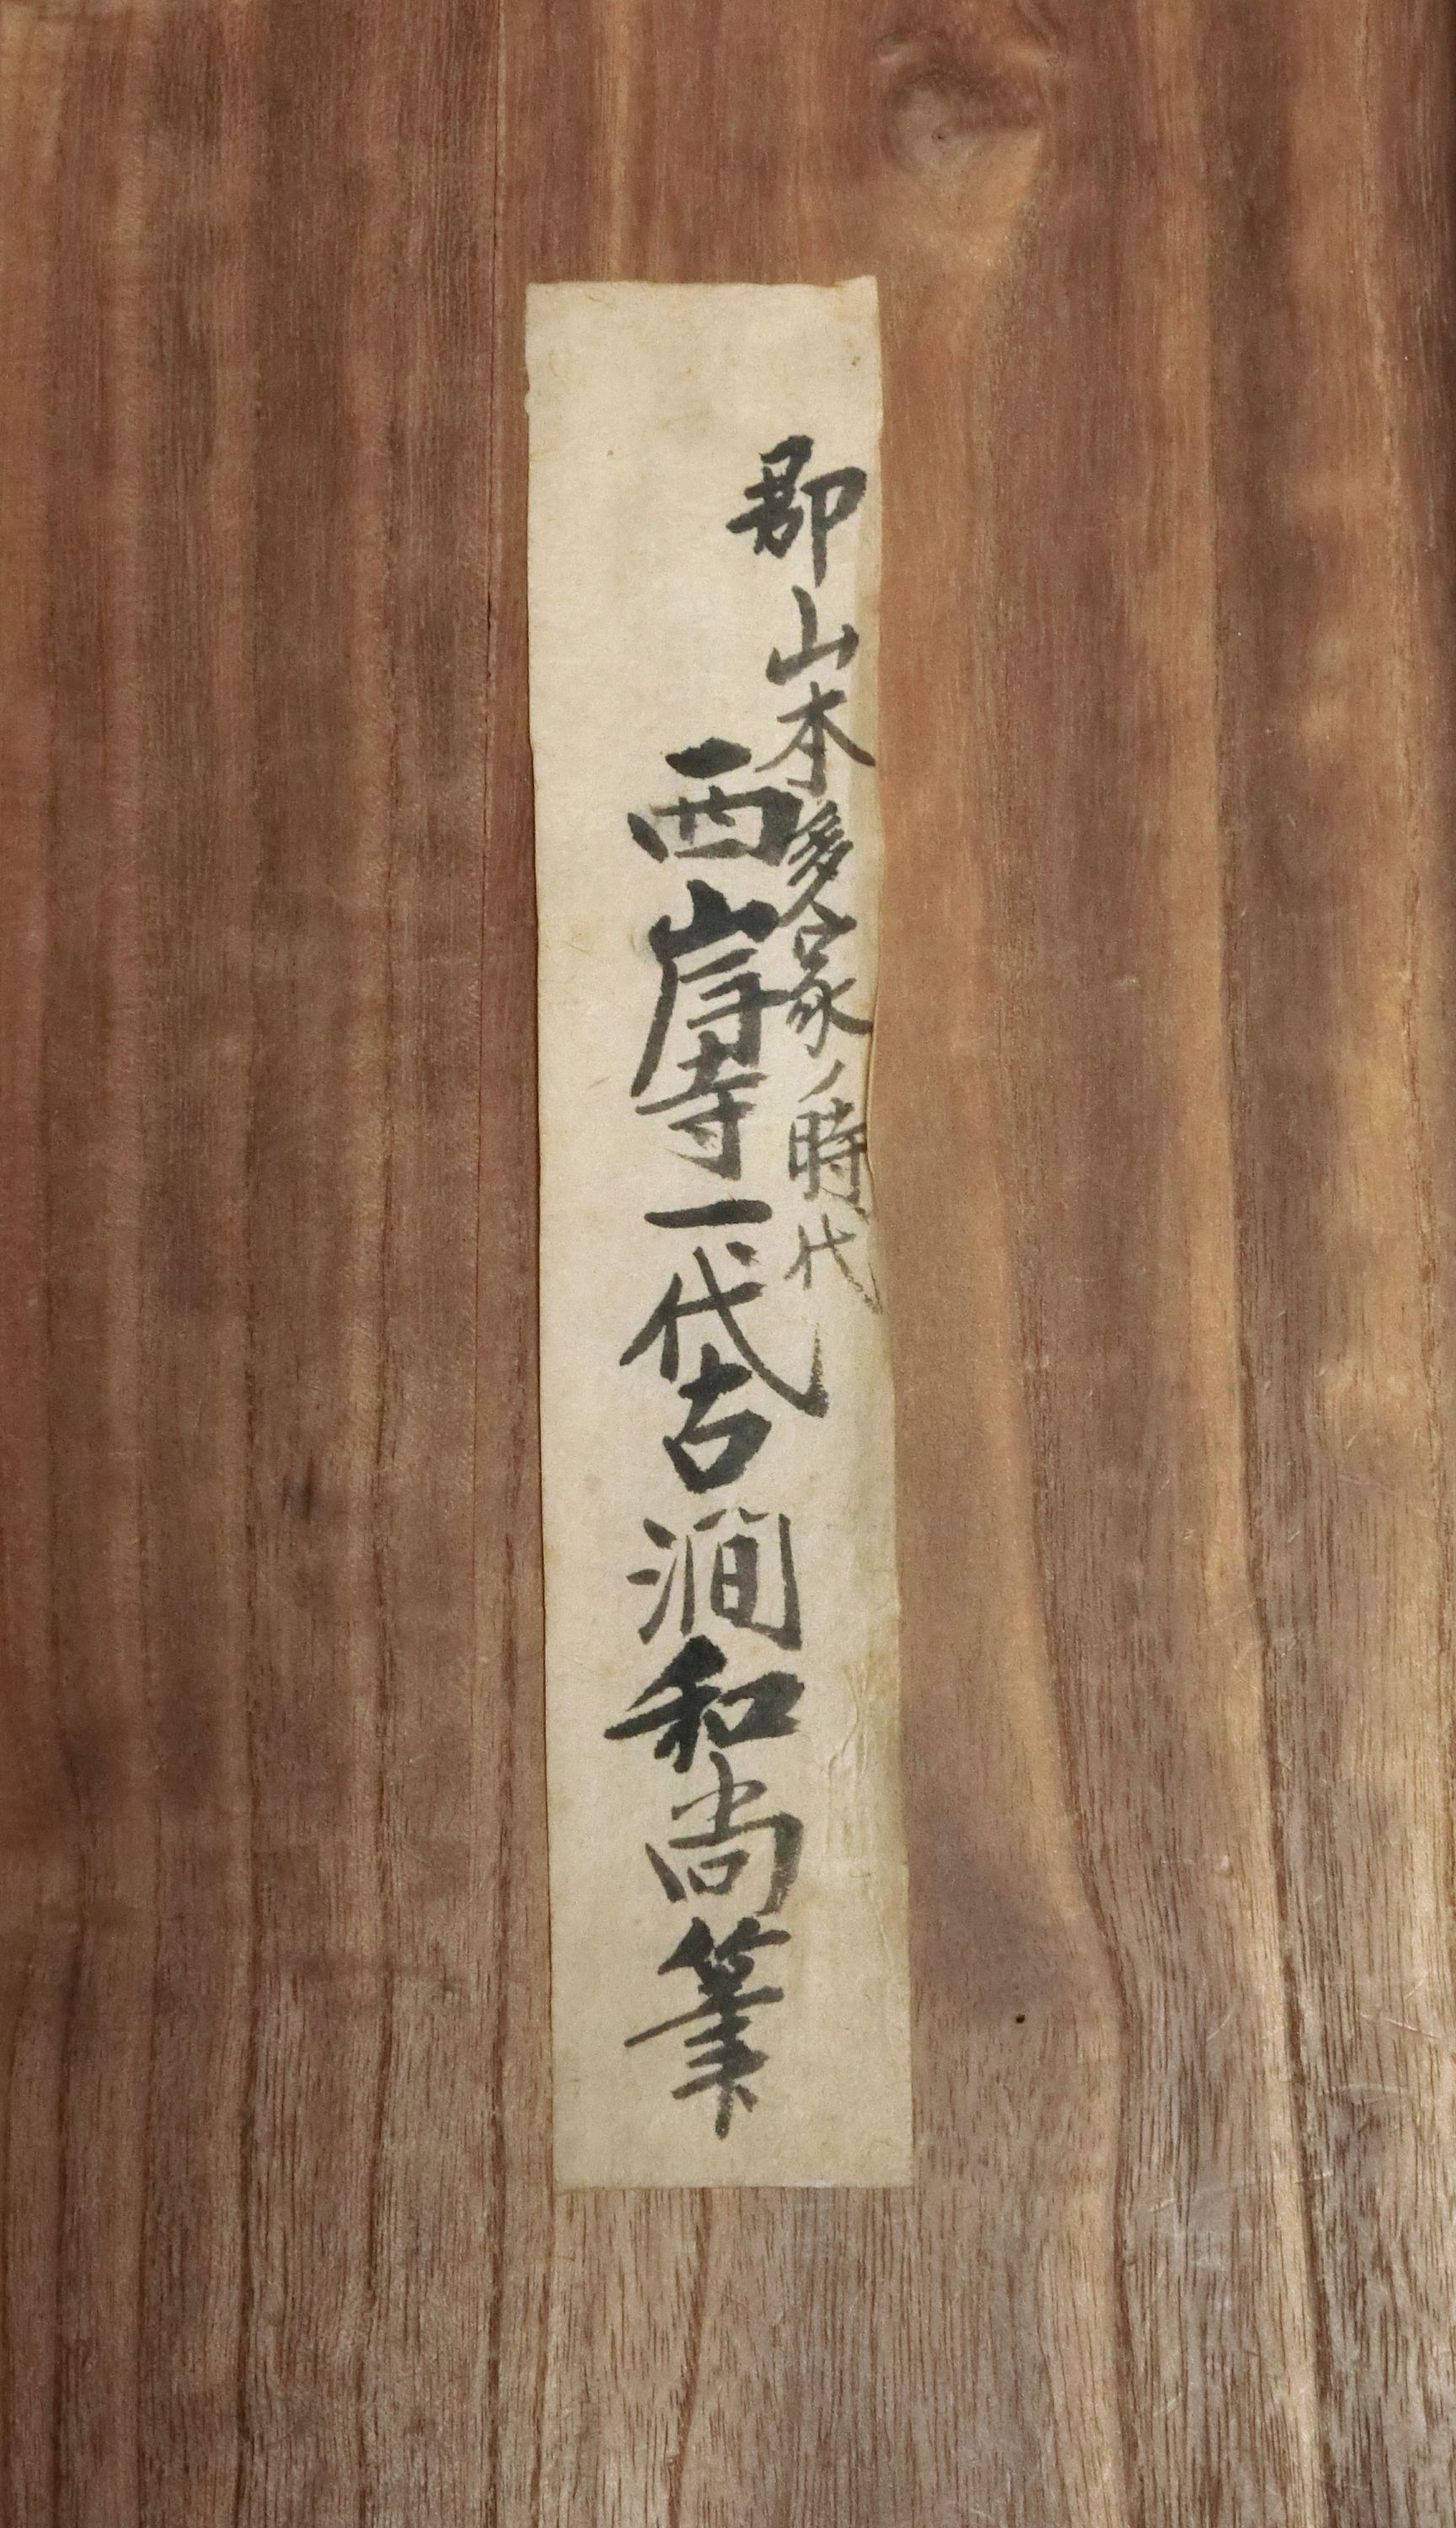 郡山本多家ノ時代
西岸寺一代古澗和尚筆